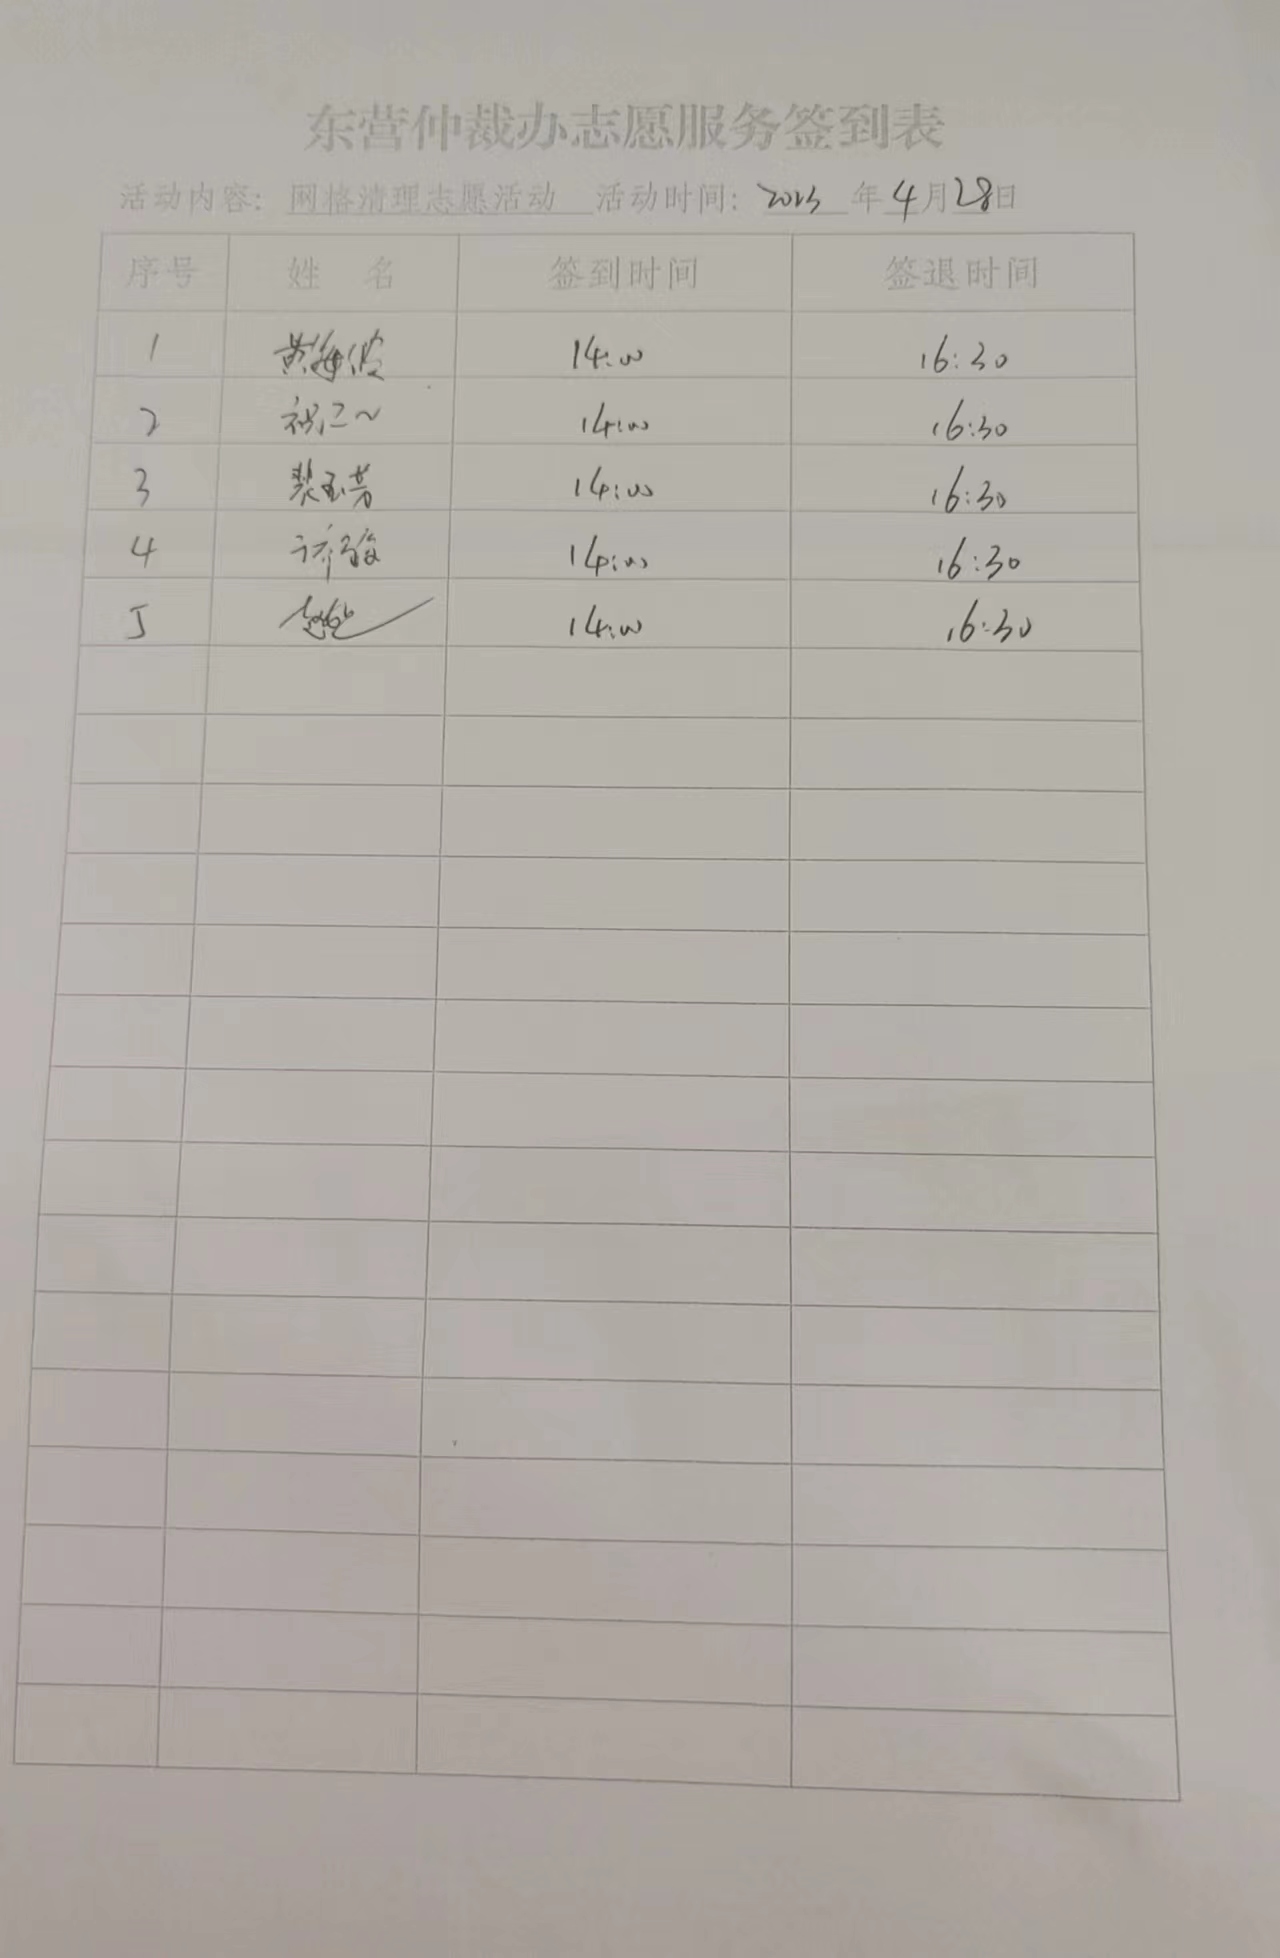 东营仲裁办志愿服务签到表
活动内容：网格清理志愿活动 活动时间：2023年4月28日
序号 姓 名 签到时间 签退时间
1 黄海波 14:00 16:30
2 14:00 16:30
3 裴玉芳 14:00 16:30
4 14:00 16:30
5 14:00 16:30